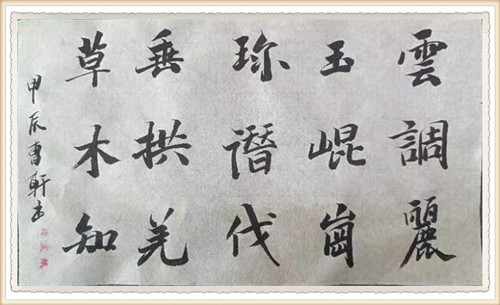 雲調麗
玉崐崗
珎潛伐
垂拱羌
草木知
甲辰曹軒书